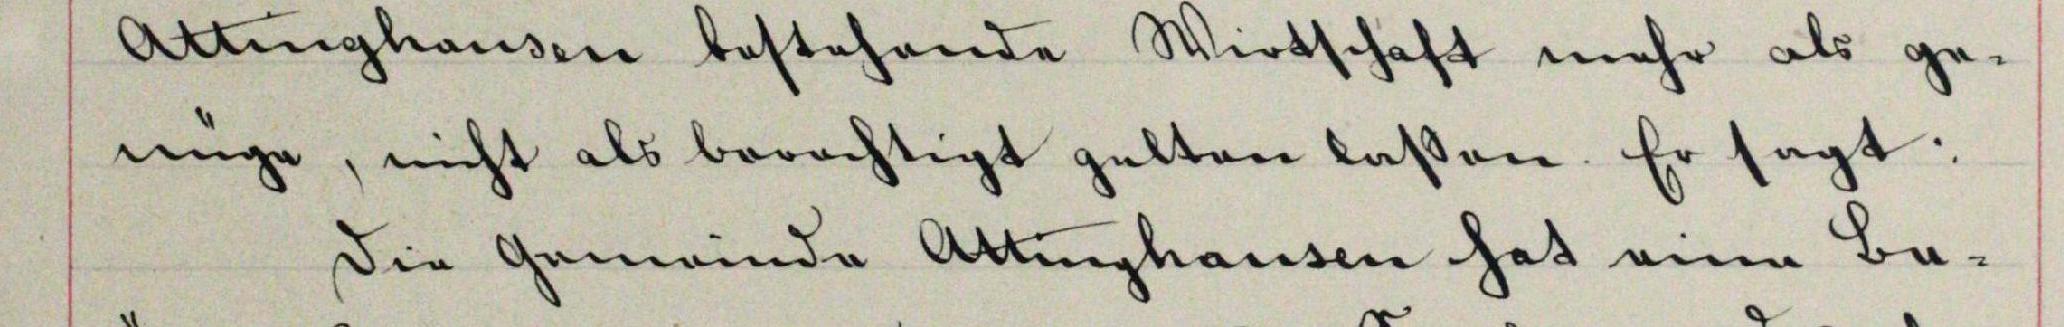 Attinghausen bestehende Wirtschaft mehr als ge-
nüge, nicht als berechtigt gelten laßen. Er sagt:
Die Gemeinde Attinghausen hat eine Be-